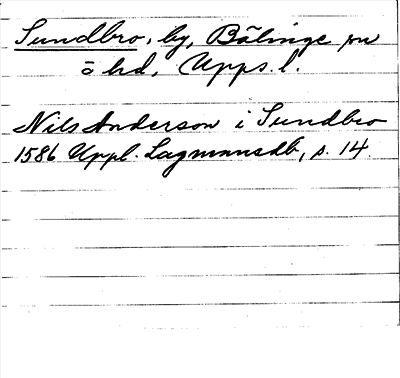 Sundbro, by, Bälinge sn
o hd, Upps. l.
Nils Anderson i Sundbro
1586 Uppl. Lagmansdb, s. 14.